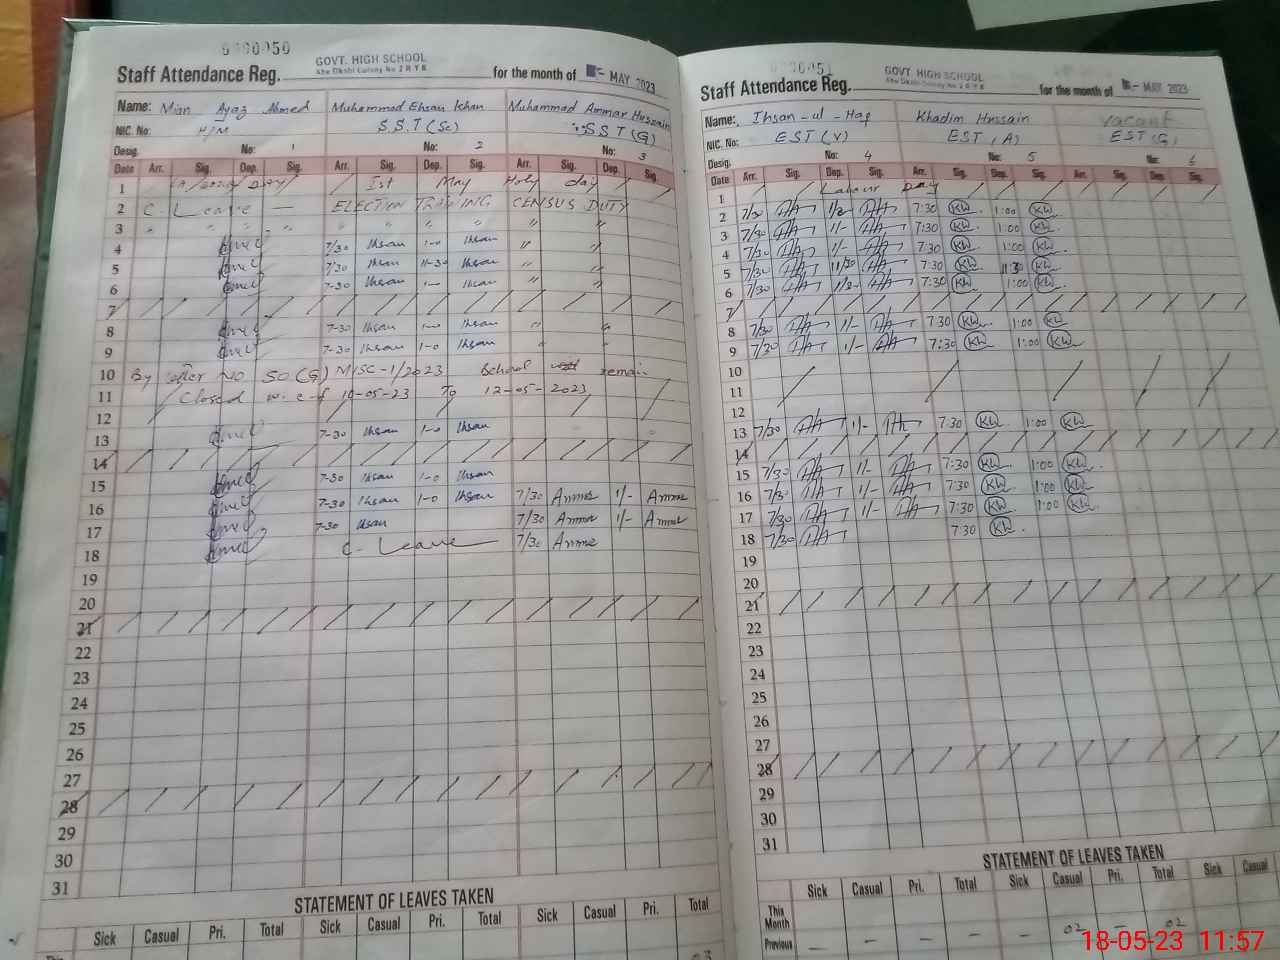 0000050
GOVT. HIGH SCHOOL
Abu Dhabi Colony No 2 R Y K
Staff Attendance Reg. for the month of MAY 2023
Name: Mian Ayaz Ahmed Muhammad Ehsan Khan Muhammad Ammar Hussain
NIC. No: H/M S.S.T (Sc) SST (G)
Desig. No: 1 No: 2 No: 3
Date Arr. Sig. Dep. Sig. Arr. Sig. Dep. Sig. Arr. Sig. Dep. Sig.
1 DAY Ist May Holy day
2 C. Leave — ELECTION TRAINING CENSUS DUTY
3 " " " " " " " "
4 7/30 Ihsan 1-0 Ihsan " "
5 7/30 Ihsan 11-30 Ihsan " "
6 7-30 Ihsan 1- Ihsan " "
7
8 7-30 Ihsan 1-0 Ihsan " "
9 7-30 Ihsan 1-0 Ihsan " "
10 By letter NO SO (G) MISC-1/2023 School remain
11 Closed w.e.f 10-05-23 To 12-05-2023
12
13 7-30 Ihsan 1-0 Ihsan
14
15 7-30 Ihsan 1-0 Ihsan
16 7-30 Ihsan 1-0 Ihsan 7/30 Ammar 1/- Ammar
17 7-30 Ihsan 7/30 Ammar 1/- Ammar
18 C. Leave 7/30 Ammar
19
20
21
22
23
24
25
26
27
28
29
30
31
STATEMENT OF LEAVES TAKEN
Sick Casual Pri. Total Sick Casual Pri. Total
03
0000051
GOVT. HIGH SCHOOL
Abu Dhabi Colony No 2 R Y K
Staff Attendance Reg. for the month of MAY 2023
Name: Ihsan-ul-Haq Khadim Hussain vacant
NIC. No: EST (V) EST (A) EST (G)
Desig. No: 4 No: 5 No: 6
Date Arr. Sig. Dep. Sig. Arr. Sig. Dep. Sig. Arr. Sig. Dep. Sig.
1 Labour Day
2 7/30 7:30 KW 1:00 KW
3 7/30 1/- 7:30 KW 1:00 KW
4 7/30 1/- 7:30 KW 1:00 KW
5 7/30 11/30 7:30 KW 11:30 KW
6 7/30 7:30 KW 1:00 KW
7
8 7/30 1/- 7:30 KW 1:00 KW
9 7/30 1/- 7:30 KW 1:00 KW
10
11
12
13 7/30 1/- 7:30 KW 1:00 KW
14
15 7/30 1/- 7:30 KW 1:00 KW
16 7/30 1/- 7:30 KW 1:00 KW
17 7/30 1/- 7:30 KW 1:00 KW
18 7/30 7:30 KW
19
20
21
22
23
24
25
26
27
28
29
30
31
STATEMENT OF LEAVES TAKEN
Sick Casual Pri. Total Sick Casual Pri. Total Sick Casual
This Month — — — — — 02 — 02
Previous
18-05-23 11:57